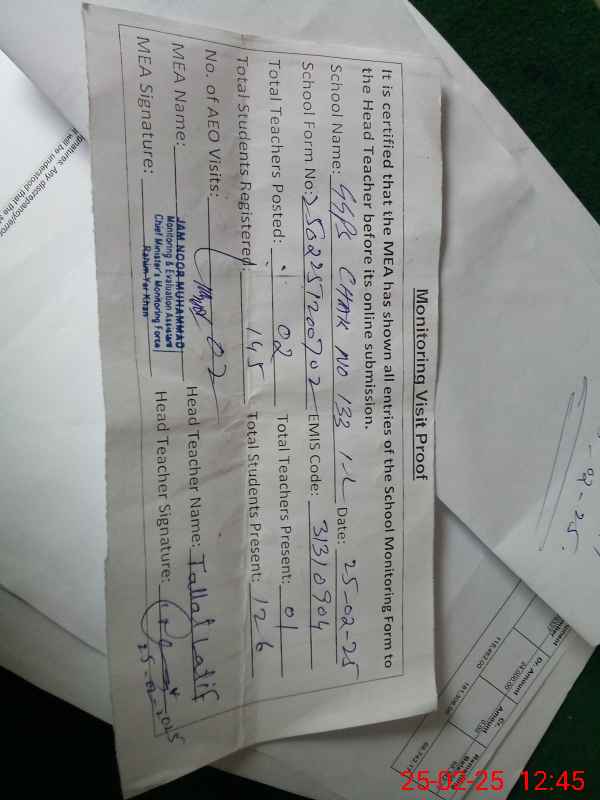 Monitoring Visit Proof
It is certified that the MEA has shown all entries of the School Monitoring Form to
the Head Teacher before its online submission.
School Name: GGPS CHAK NO 133 1-L Date: 25-02-25
School Form No: 2502251200702 EMIS Code: 31310904
Total Teachers Posted: 02 Total Teachers Present: 01
Total Students Registered: 145 Total Students Present: 126
No. of AEO Visits: 02
MEA Name: JAM NOOR MUHAMMAD Head Teacher Name: Tallat Latif
Monitoring & Evaluation Assistant
Chief Minister's Monitoring Force
Rahim Yar Khan
MEA Signature: Head Teacher Signature:
25-02-2025
-02-25
signatures. Any discrepancy/error
It will be understood that the
Dr. Amount
Cr. Amount
0.00
25-02-25 12:45